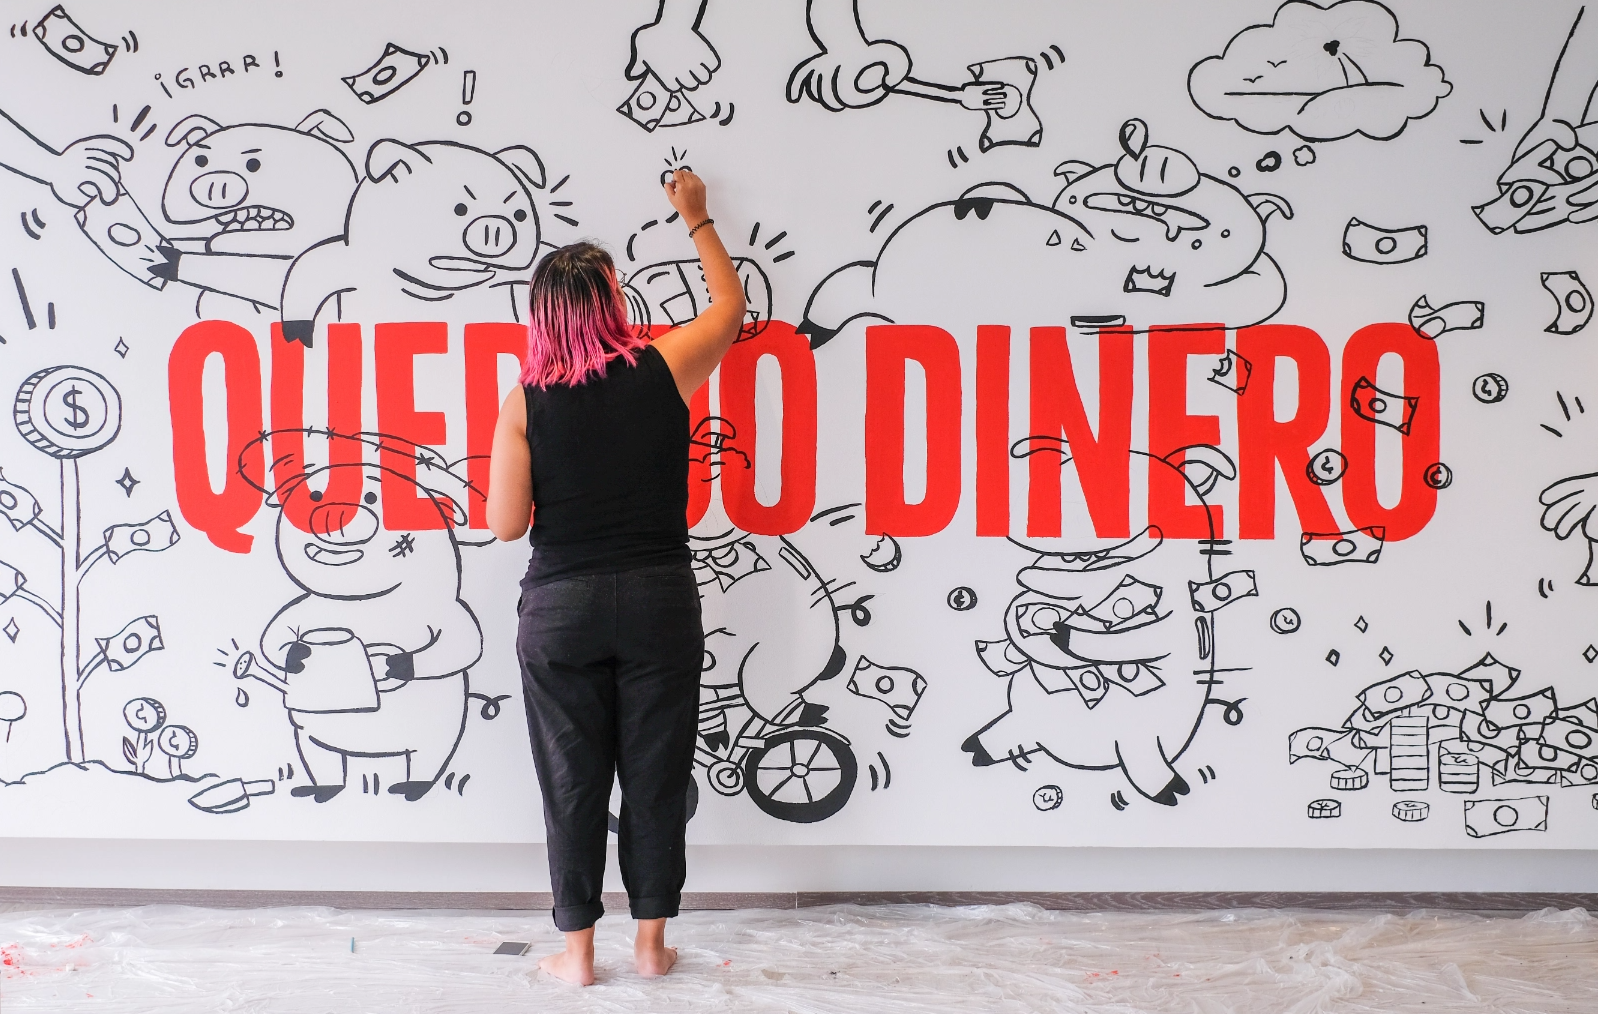 ¡GRRR!
!
QUERIDO DINERO
$